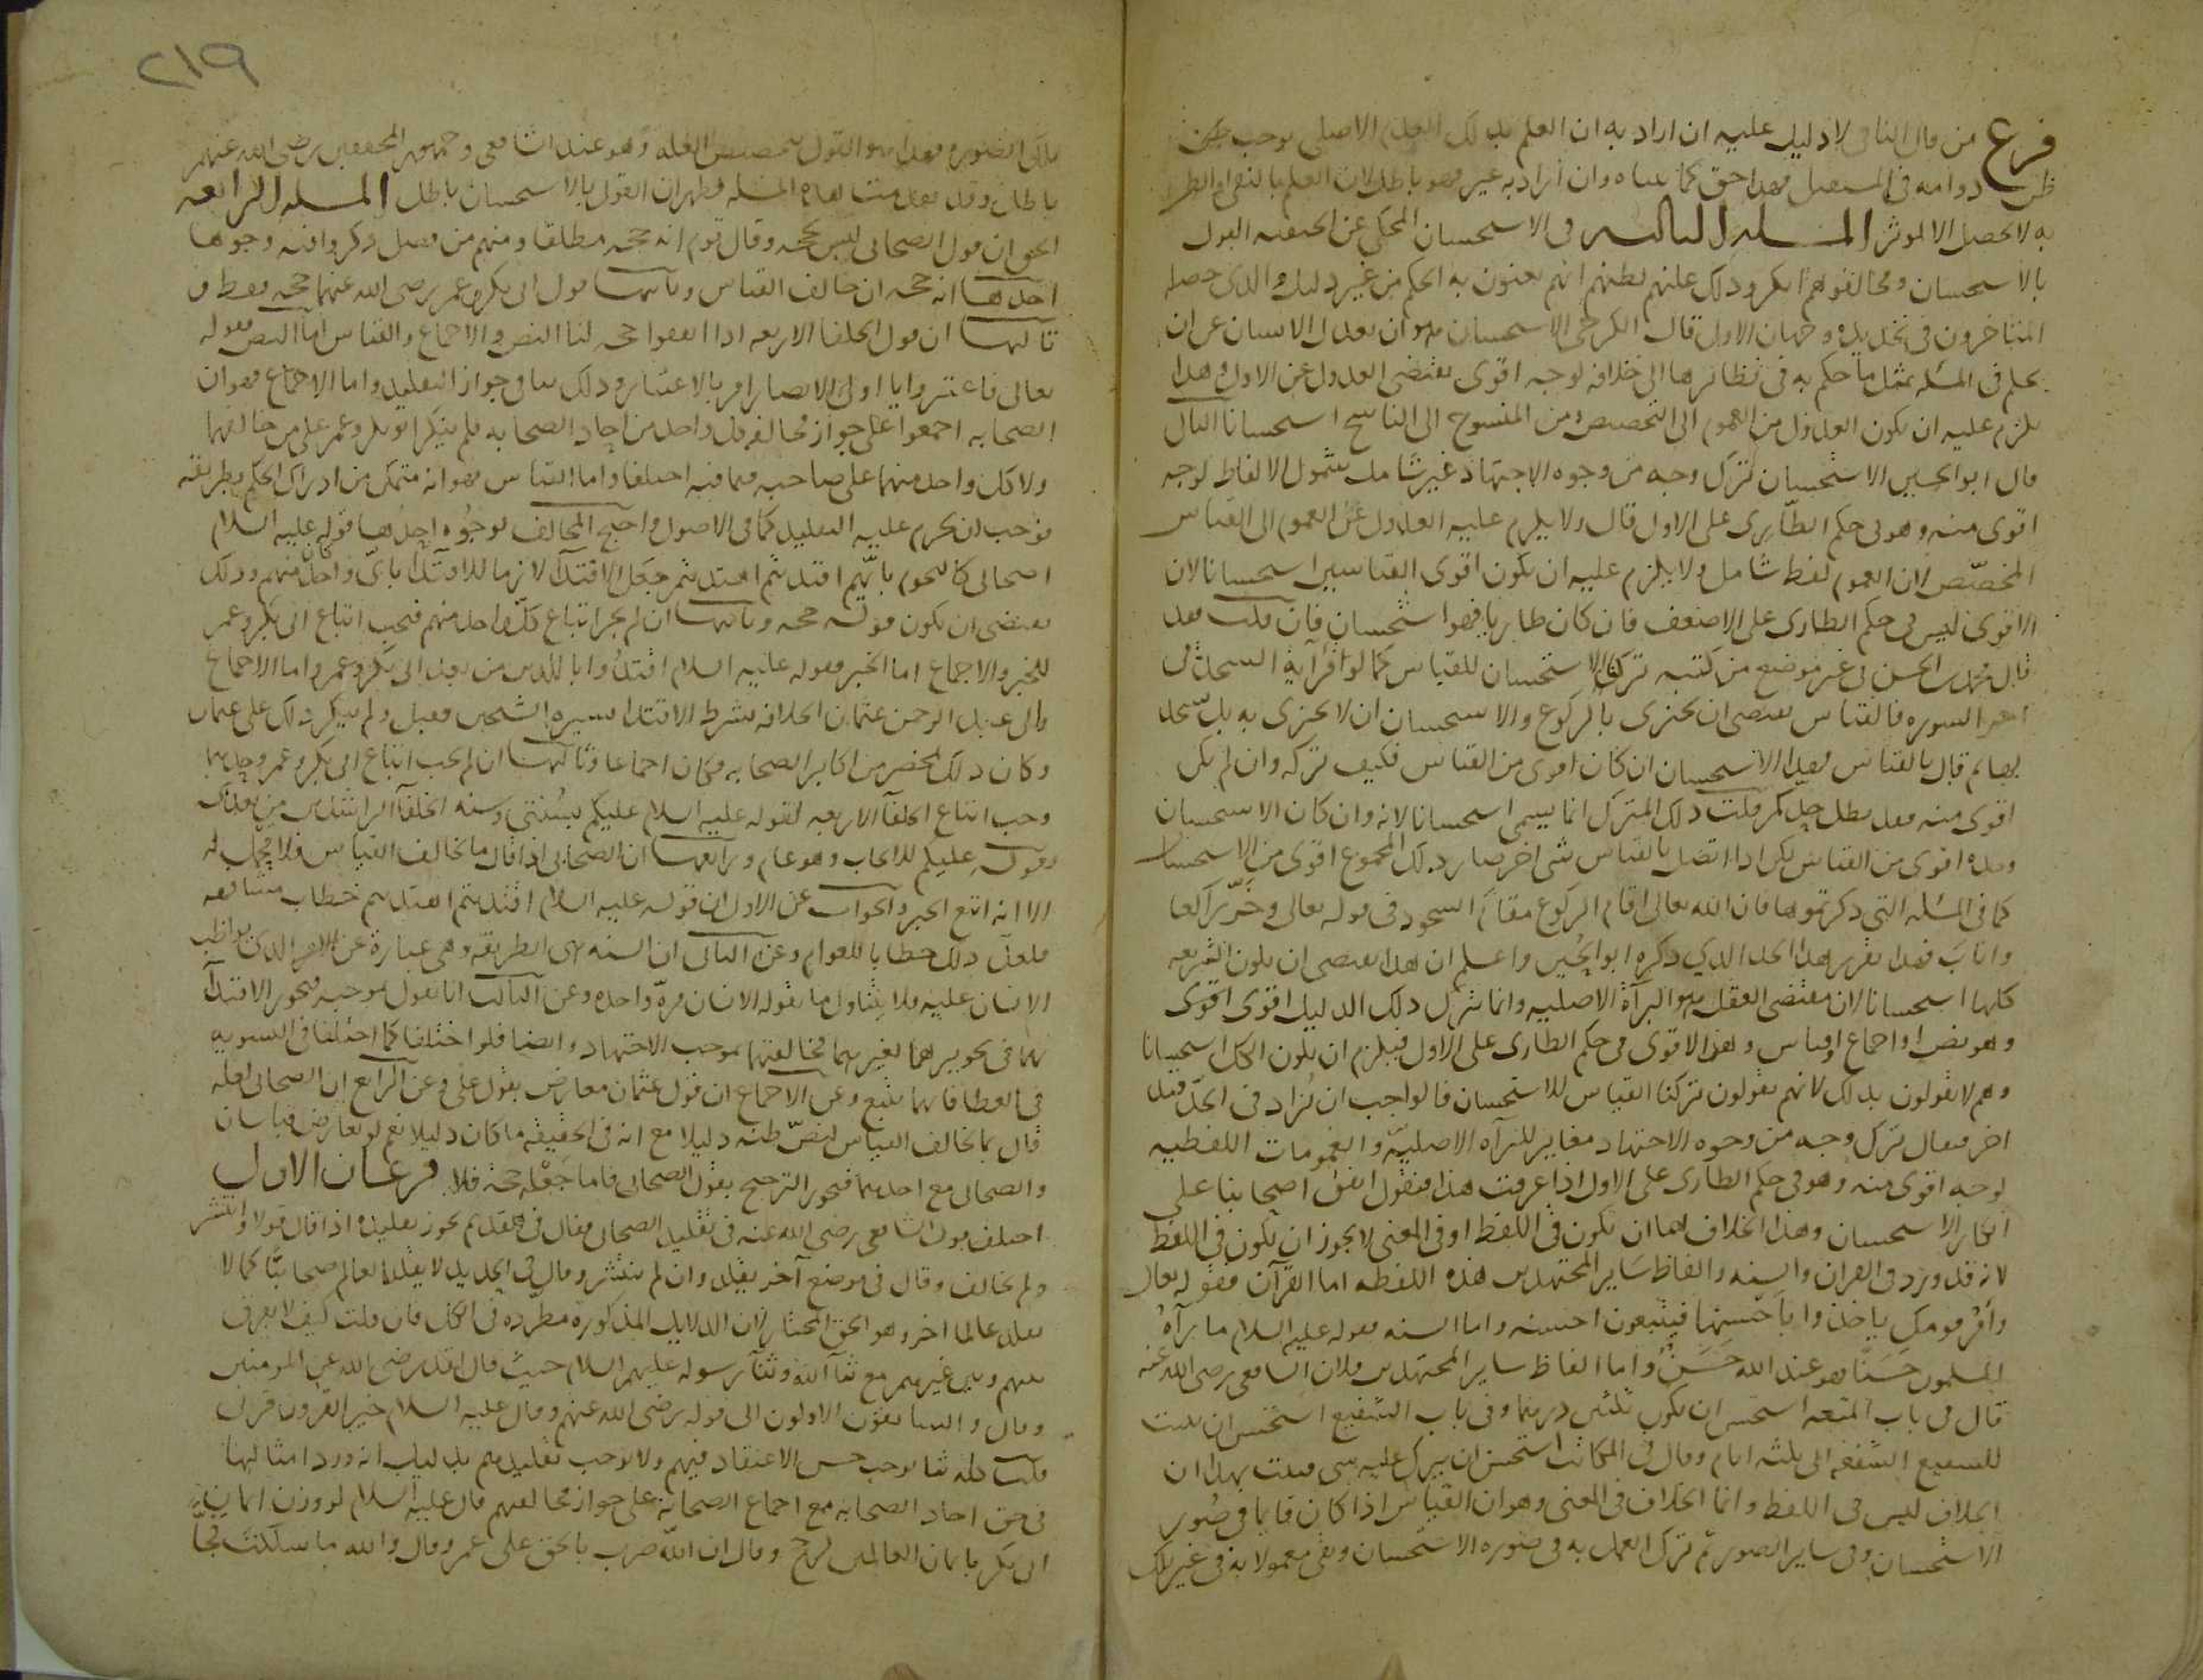 فرع من قال النافي لا دليل عليه ان اراد به ان العلم بذلك العدم الاصلي يوجب ظن
ظن دوامه في المستقبل فهذا حق كما بيناه وان اراد به غيره فهو باطل لان العلم بالنفي او الظن
به لا يحصل الا لموثر المسله الثالثه في الاستحسان المحكي عن الحنفيه القول
بالاستحسان ومخالفوهم انكروا ذلك عليهم لظنهم انهم يعنون به الحكم من غير دليل والذي حصله
المتاخرون في تحديده وجهان الاول قال الكرخي الاستحسان هو ان يعدل الانسان عن ان
يحكم في المسله بمثل ما حكم به في نظائرها الى خلافه لوجه اقوى يقتضي العدول عن الاول وهذا
يلزم عليه ان يكون العدول من العموم الى التخصيص ومن المنسوخ الى الناسخ استحسانا الثاني
قال ابو الحسين الاستحسان ترك وجه من وجوه الاجتهاد غير شامل شمول الالفاظ لوجه
اقوى منه وهو في حكم الطاري على الاول قال ولا يلزم عليه العدول عن العموم الى القياس
المخصص لان العموم لفظ شامل ولا يلزم عليه ان يكون اقوى القياسين استحسانا لان
الاقوى ليس في حكم الطاري على الاضعف فان كان طاريا فهو استحسان فان قلت فقد
قال محمد بن الحسن في غير موضع من كتبه تركنا الاستحسان للقياس كما لو قرا آية السجدة في
اخر السوره فالقياس يقتضي ان يجتزي بالركوع والاستحسان ان لا يجتزى به بل سجد
لها ثم قال بالقياس فهذا الاستحسان ان كان اقوى من القياس فكيف تركه وان لم يكن
اقوى منه فقد بطل حدكم قلت ذلك المترك انما يسمى استحسانا لانه وان كان الاستحسان
وحده اقوى من القياس لكن اذا اتصل بالقياس شي اخر صار ذلك المجموع اقوى من الاستحسان
كما في المسله التي ذكرتموها فان الله تعالى اقام الركوع مقام السجود في قوله تعالى وخر راكعا
واناب فهذا تقرير هذا الحد الذي ذكره ابو الحسين واعلم ان هذا يقتضي ان يكون الشريعه
كلها استحسانا لان مقتضى العقل هو البرآة الاصليه وانما تترك ذلك الدليل اقوى اقوى
وهو نص او اجماع او قياس وهذا الاقوى في حكم الطاري على الاول فيلزم ان يكون الكل استحسانا
وهم لا يقولون بذلك لانهم يقولون تركنا القياس للاستحسان فالواجب ان يزاد في الحد قيد
اخر فيقال ترك وجه من وجوه الاجتهاد مغاير للبرآه الاصليه والعمومات اللفظيه
لوجه اقوى منه وهو في حكم الطاري على الاول اذا عرفت هذا فنقول اتفق اصحابنا على
انكار الاستحسان وهذا الخلاف اما ان يكون في اللفظ او في المعنى لا يجوز ان يكون في اللفظ
لانه قد ورد في القران والسنه والفاظ ساير المجتهدين هذه اللفظه اما القرآن فقوله تعالى
وأمر قومك ياخذوا باحسنها فيتبعون احسنه واما السنه فقوله عليه السلام ما رآه
المسلمون حسنا فهو عند الله حسن واما الفاظ ساير المجتهدين فلان الشافعي رضي الله عنه
قال في باب المتعه استحسن ان يكون ثلثين درهما وفي باب الشفيع استحسن ان يثبت
للشفيع الشفعه الى ثلثه ايام وقال في المكاتب استحسن ان يترك عليه شي فثبت بهذا ان
الخلاف ليس في اللفظ وانما الخلاف في المعنى وهو ان القياس اذا كان قايما في صور
الاستحسان وفي ساير الصور ثم ترك العمل به في صوره الاستحسان وبقي معمولا به في غير تلك
٢١٩
تلك الصوره فهذا هو القول بتخصيص العله وهو عند الشافعي وجمهور المحققين رضي الله عنهم
باطل وقد تقدمت هذه المسله فظهر ان القول بالاستحسان باطل المسله الرابعه
الحق ان قول الصحابي ليس بحجه وقال قوم انه حجه مطلقا ومنهم من فصل وذكروا فيه وجوها
احدها انه حجه ان خالف القياس وثانيها قول ابي بكر وعمر رضي الله عنهما حجه فقط و
ثالثها ان قول الخلفا الاربعه اذا اتفقوا حجه لنا النص والاجماع والقياس اما النص فقوله
تعالى فاعتبروا يا اولي الابصار امر بالاعتبار وذلك ينافي جواز التقليد واما الاجماع فهو ان
الصحابه اجمعوا على جواز مخالفه كل واحد من احاد الصحابه فلم ينكر ابو بكر وعمر على من خالفهما
ولا كل واحد منهما على صاحبه فيما فيه اختلفا واما القياس فهو انه متمكن من ادراك الحكم بطريقه
فوجب ان يحرم عليه التقليد كما في الاصول واحتج المخالف لوجوه احدها قوله عليه السلام
اصحابي كالنجوم بايهم اقتديتم اهتديتم جعل الاقتدآ لازما للاقتدآ باي واحد كان منهم وذلك
يقتضي ان يكون قوله حجه وثانيها ان لم يجز اتباع كل واحد منهم فيجب اتباع ابي بكر وعمر
للخبر والاجماع اما الخبر فقوله عليه السلام اقتدوا باللذين من بعدي ابي بكر وعمر واما الاجماع
ولى عبد الرحمن عثمان الخلافه بشرط الاقتدا بسيره الشيخين فقبل ولم ينكر ذلك على عثمان
وكان ذلك بمحضر من اكابر الصحابه فكان اجماعا وثالثها ان لم يجب اتباع ابي بكر وعمر وحدهما
وجب اتباع الخلفآ الاربعه لقوله عليه السلام عليكم بسنتي وسنه الخلفآ الراشدين من بعدي
وقوله عليكم للايجاب وهو عام ورابعها ان الصحابي اذا قال ما يخالف القياس فلا محمل له
الا انه اتبع الخبر والجواب عن الاول ان قوله عليه السلام اقتديتم اهتديتم خطاب مشافهه
فلعل ذلك خطابا للعوام وعن الثاني ان السنه هي الطريقه وهي عبارة عن الامر الذي يواظب
الانسان عليه فلا يتناول ما يقوله الانسان مرة واحده وعن الثالث انا نقول بموجبه فيجوز الاقتدآ
بهما في تجويزهما لغيرهما مخالفتهما بموجب الاجتهاد وايضا فلو اختلفا كما اختلفا في التسويه
في العطا فايهما يتبع وعن الاجماع ان قول عثمان معارض بقول علي وعن الرابع ان الصحابي لعله
قال بما يخالف القياس لنص ظنه دليلا مع انه في الحقيقه ما كان دليلا نعم لو تعارض قياسان
والصحابي مع احدهما فيجوز الترجيح بقول الصحابي فاما جعله حجه فلا فرعان الاول
اختلف قول الشافعي رضي الله عنه في تقليد الصحابي فقال في القديم يجوز تقليده اذا قال قولا وانتشر
ولم يخالف وقال في موضع آخر يقلد وان لم ينتشر وقال في الجديد لا يقلد العالم صحابيا كما لا
يقلد عالما اخر وهو الحق المختار لان الدلايل المذكورة مطرده في الكل فان قلت كيف لا يفرق
بينهم وبين غيرهم مع ثنآ الله وثنآ رسوله عليهم السلام حيث قال لقد رضي الله عن المومنين
وقال والسابقون الاولون الى قوله رضي الله عنهم وقال عليه السلام خير القرون قرني
قلت هذا ثنا يوجب حسن الاعتقاد فيهم ولا يوجب تقليدهم بدليل انه ورد امثالها
في حق احاد الصحابه مع اجماع الصحابة على جواز مخالفتهم قال عليه السلام لو وزن ايمان
ابي بكر بايمان العالمين لرجح وقال ان الله ضرب بالحق على عمر وقال والله ما سلكت فجا